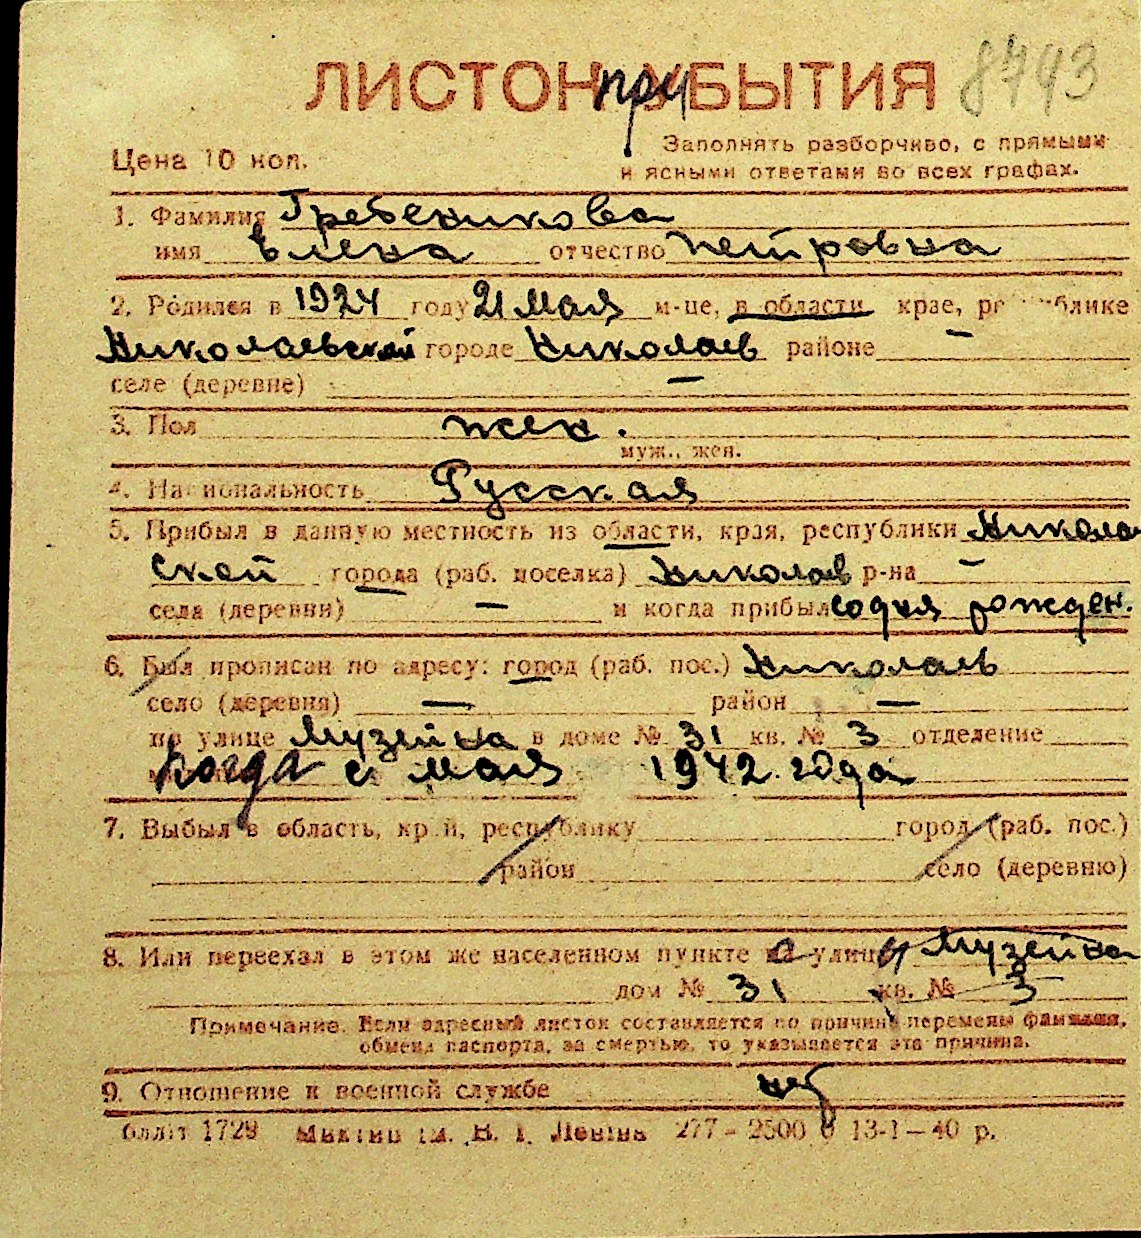 ЛИСТОК ПРИБЫТИЯ 8743
Цена 10 коп.
Заполнять разборчиво, с прямыми
и ясными ответами во всех графах.
1. Фамилия Гребенникова
имя Елена отчество Петровна
2. Родился в 1924 году 21 мая м-це, в области крае, республике
Николаевской городе Николаев районе —
селе (деревне) —
3. Пол жен.
муж., жен.
4. Национальность Русская
5. Прибыл в данную местность из области, края, республики Никола
ской города (раб. поселка) Николаев р-на —
села (деревни) — и когда прибыл со дня рожден.
6. Был прописан по адресу: город (раб. пос.) Николаев
село (деревня) — район —
по улице Музейна в доме № 31 кв. № 3 отделение
когда с мая 1942 года
7. Выбыл в область, край, республику город (раб. пос.)
район село (деревню)
8. Или переехал в этом же населенном пункте с улицы Музейна
дом № 31 кв. № 3
Примечание. Если адресный листок составляется по причине перемены фамилии,
обмена паспорта, за смертью, то указывается эта причина.
9. Отношение к военной службе нет
1729 Leнiна 277 – 2500 б 13-1–40 р.